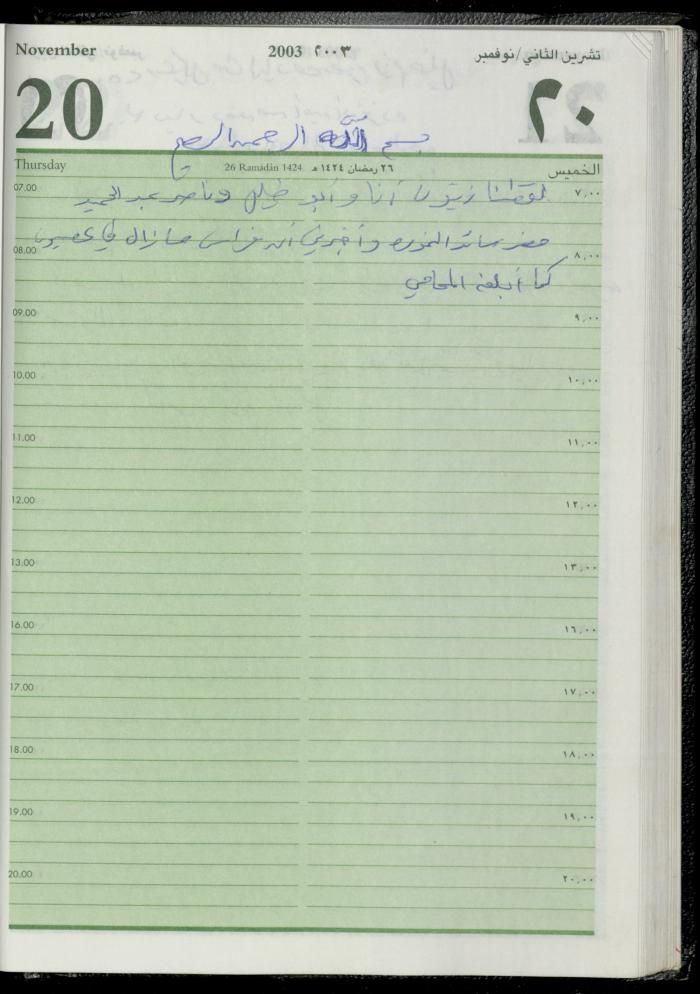 November 2003 ٢٠٠٣ تشرين الثاني/نوفمبر
20 ٢٠
بسم الله الرحمن الرحيم
Thursday 26 Ramadān 1424 ٢٦ رمضان ١٤٢٤ هـ الخميس
07.00 لقطنا زيتون أنا وأبو خليل وناصر عبد الحميد ٧,٠٠
حضر مأمور وأخبرني أن فراس مازال في
08.00 ٨,٠٠
كما أبلغه المحامي
09.00 ٩,٠٠
10.00 ١٠,٠٠
11.00 ١١,٠٠
12.00 ١٢,٠٠
13.00 ١٣,٠٠
16.00 ١٦,٠٠
17.00 ١٧,٠٠
18.00 ١٨,٠٠
19.00 ١٩,٠٠
20.00 ٢٠,٠٠